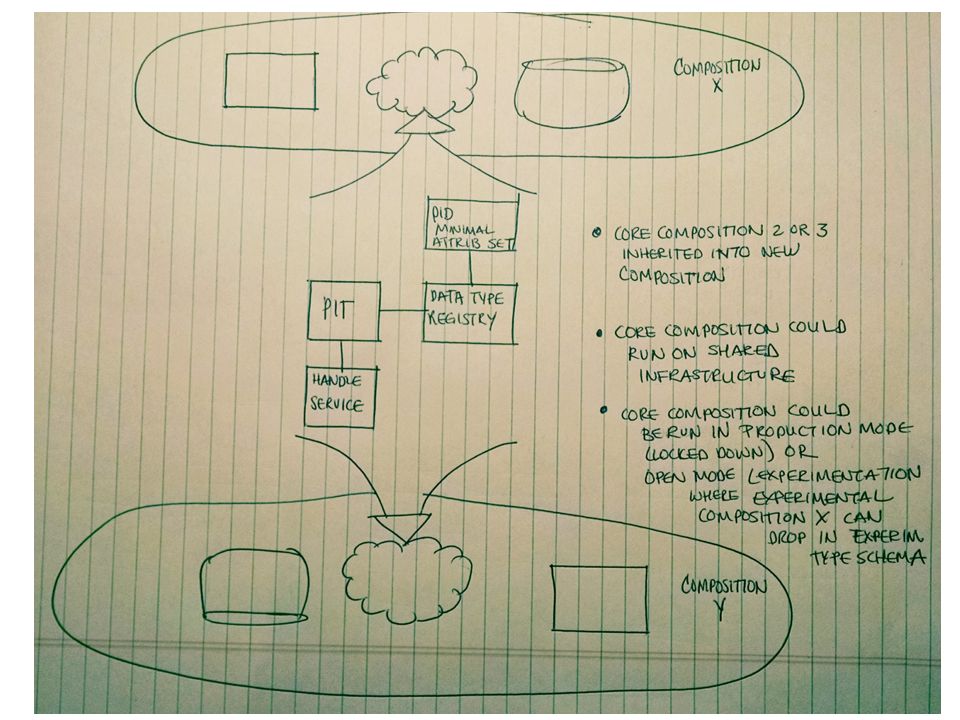 COMPOSITION
X
PID
MINIMAL
ATTRIB SET
PIT
DATA TYPE
REGISTRY
HANDLE
SERVICE
• CORE COMPOSITION 2 OR 3
INHERITED INTO NEW
COMPOSITION
• CORE COMPOSITION COULD
RUN ON SHARED
INFRASTRUCTURE
• CORE COMPOSITION COULD
BE RUN IN PRODUCTION MODE
(LOCKED DOWN) OR
OPEN MODE (EXPERIMENTATION
WHERE EXPERIMENTAL
COMPOSITION X CAN
DROP IN EXPERIM
TYPE SCHEMA
COMPOSITION
Y